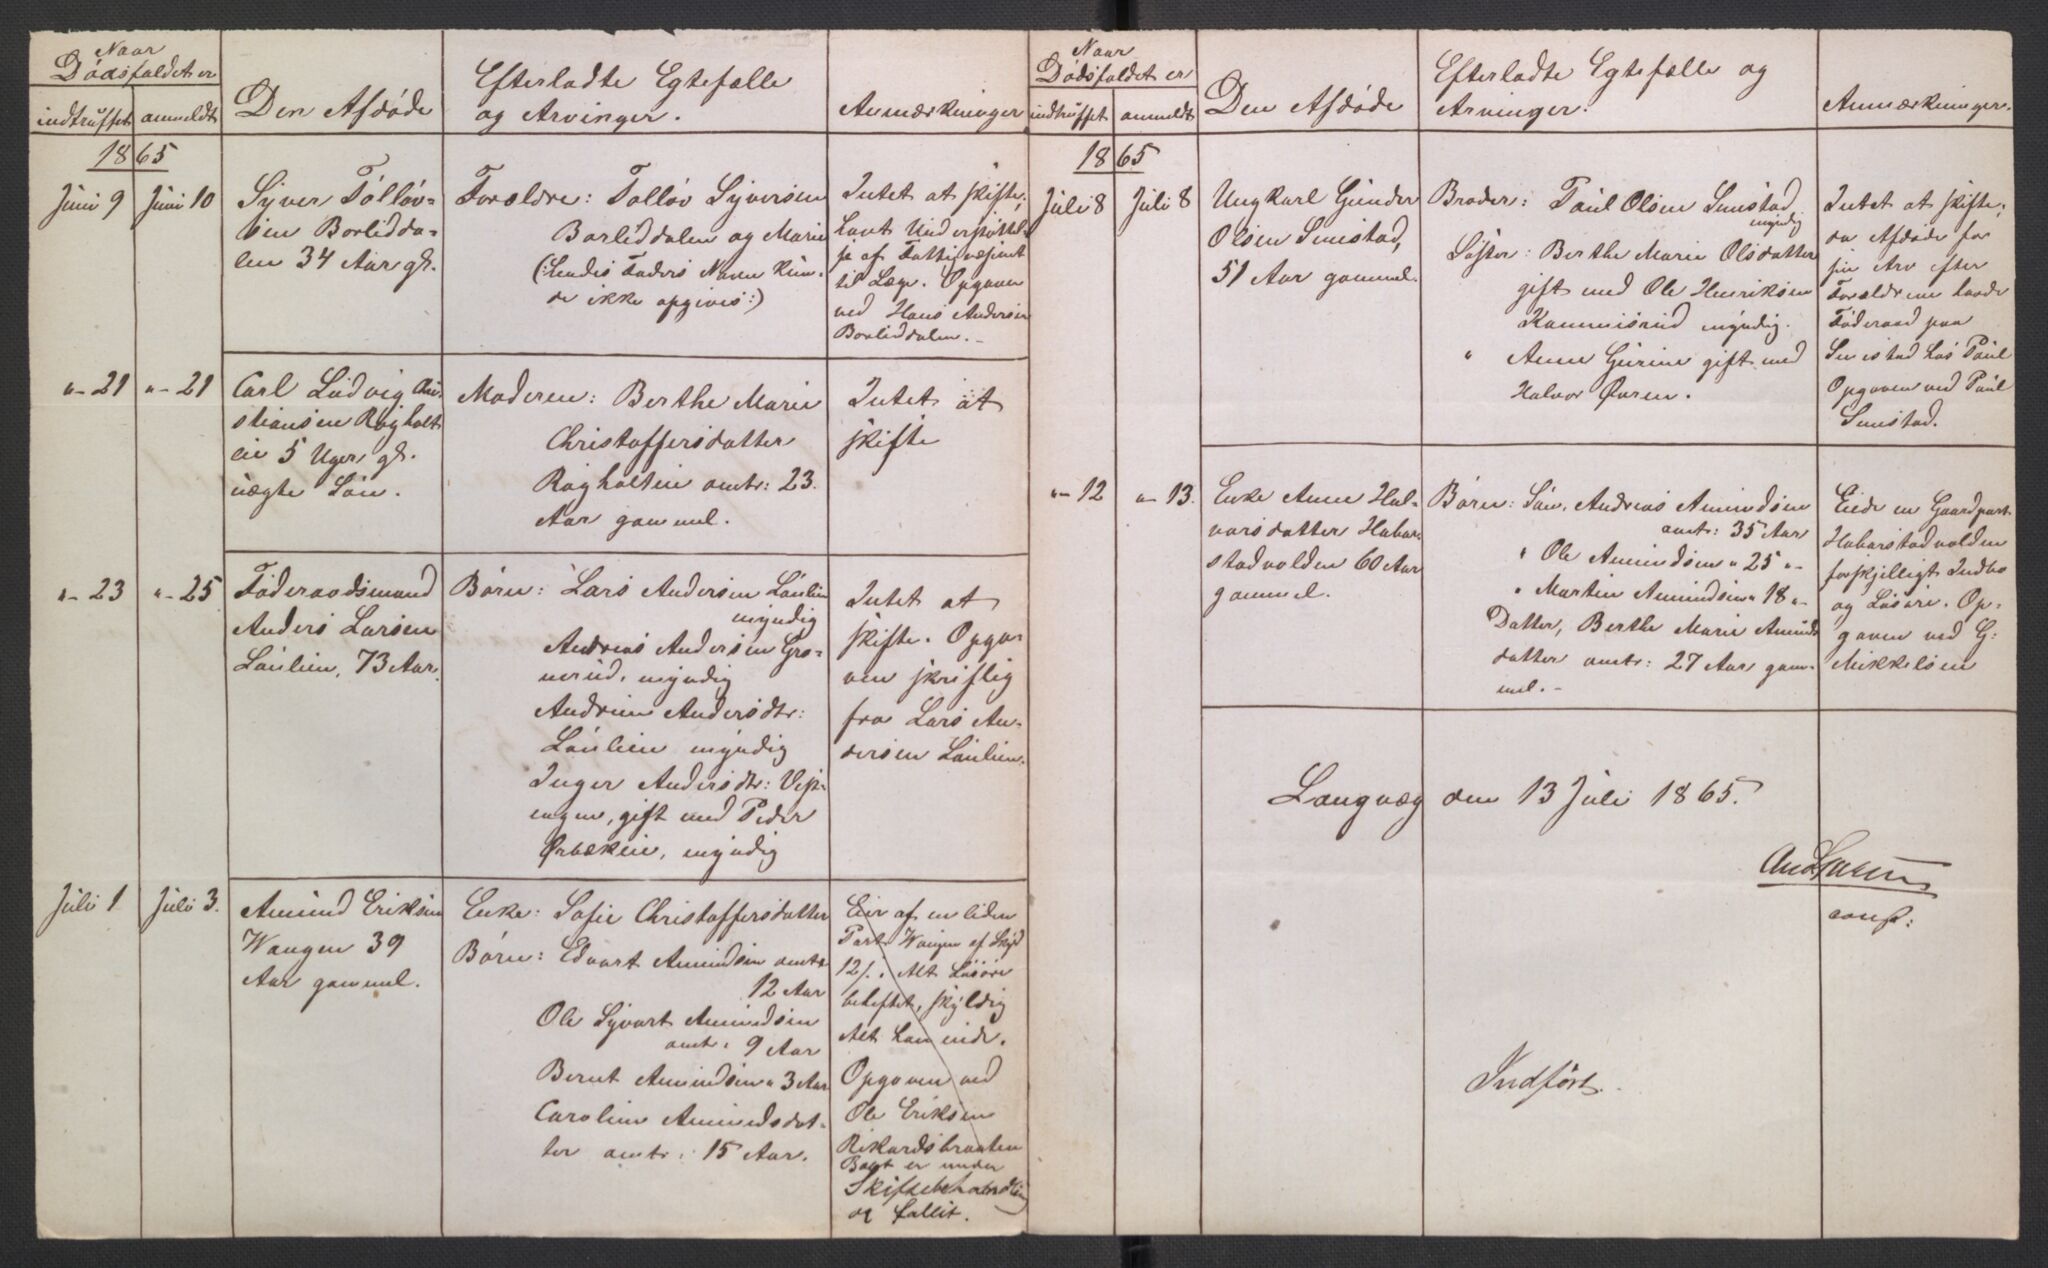 Naar
Dødsfaldet er
indtruffet
anmeldt
Den Afdøde
Efterladte Egtefælle
og Arvinger.
Anmærkninger
1865
Juni 9
Juni 10
Syver Tolløv-
sen Borlidda-
len 34 Aar gl.
Forældre: Tolløv Syversen
Borliddalen og Marie
(: hendes Faders Navn kun-
de ikke opgives :)
Intet at skifte,
havt Understøttel-
se af Fattigvæsenet
til Læge. Opgaven
ved Hans Andersen
Borliddalen.
"- 21
"- 21
Carl Ludvig Chri-
stiansen Røgholt
en 5 Uger gl.
uægte Søn.
Moderen: Berthe Marie
Christoffersdatter
Røgholten omtr: 23
Aar gammel.
Intet at
skifte
"- 23
"- 25
Føderaadsmand
Anders Larsen
Laulien, 73 Aar.
Børn: Lars Andersen Laulien
myndig
Andreas Andersen Gro-
nerud, myndig
Andrine Andersdtr:
Laulien myndig
Inger Andersdtr:
gift med Peder
myndig
Intet at
skifte. Opga-
ven skriftlig
fra Lars An-
dersen Laulien.
Juli 1
Juli 3.
Amund Eriksen
Wangen 39
Aar gammel.
Enke: Sofie Christoffersdatter
Børn: Edvart Amundsen omtr
12 Aar
Ole Syvert Amundsen
omtr. 9 Aar
Bernt Amundsen " 3 Aar
Caroline Amundsdat-
ter omtr: 15 Aar.
Eier af en liden
Part Wangen af Skyld
12 /. Alt Løsøre
beheftet, skyldig
Alt han eiede.
Opgaven ved
Ole Eriksen
Rikardsbraaten
Boet er under
Skiftebehandling
og fallit.
Naar
Dødsfaldet er
indtruffet
anmeldt
Den Afdøde
Efterladte Egtefælle og
Arvinger.
Anmærkninger.
1865
Juli 8
Juli 8
Ungkarl Gunder
Olsen Smestad,
51 Aar gammel.
Broder: Paul Olsen Smestad
myndig
Søster: Berthe Marie Olsdatter
gift med Ole Henriksen
Kammisrud myndig.
" Anne Gurine gift med
Halvor Øvren.
Intet at skifte,
da Afdøde for
sin Arv efter
Forældrene havde
Føderaad paa
Smestad hos Paul
Opgaven ved Paul
Smestad.
"- 12
"- 13.
Enke Anne Hal-
vorsdatter Habar-
stadvolden 60 Aar
gammel.
Børn: Søn, Andreas Amundsen
omtr: 35 Aar
" Ole Amundsen " 25 "-
" Martin Amundsen " 18 "-
Datter, Berthe Marie Amunds
datter omtr: 27 Aar gam-
mel.-
Eiede en Gaardpart
Habarstadvolden
forskjelligt Indbo
og Løsøre. Op-
gaven ved G:
Mikkelsen
Langvæg den 13 Juli 1865.
And Larsen
const:
Indført.